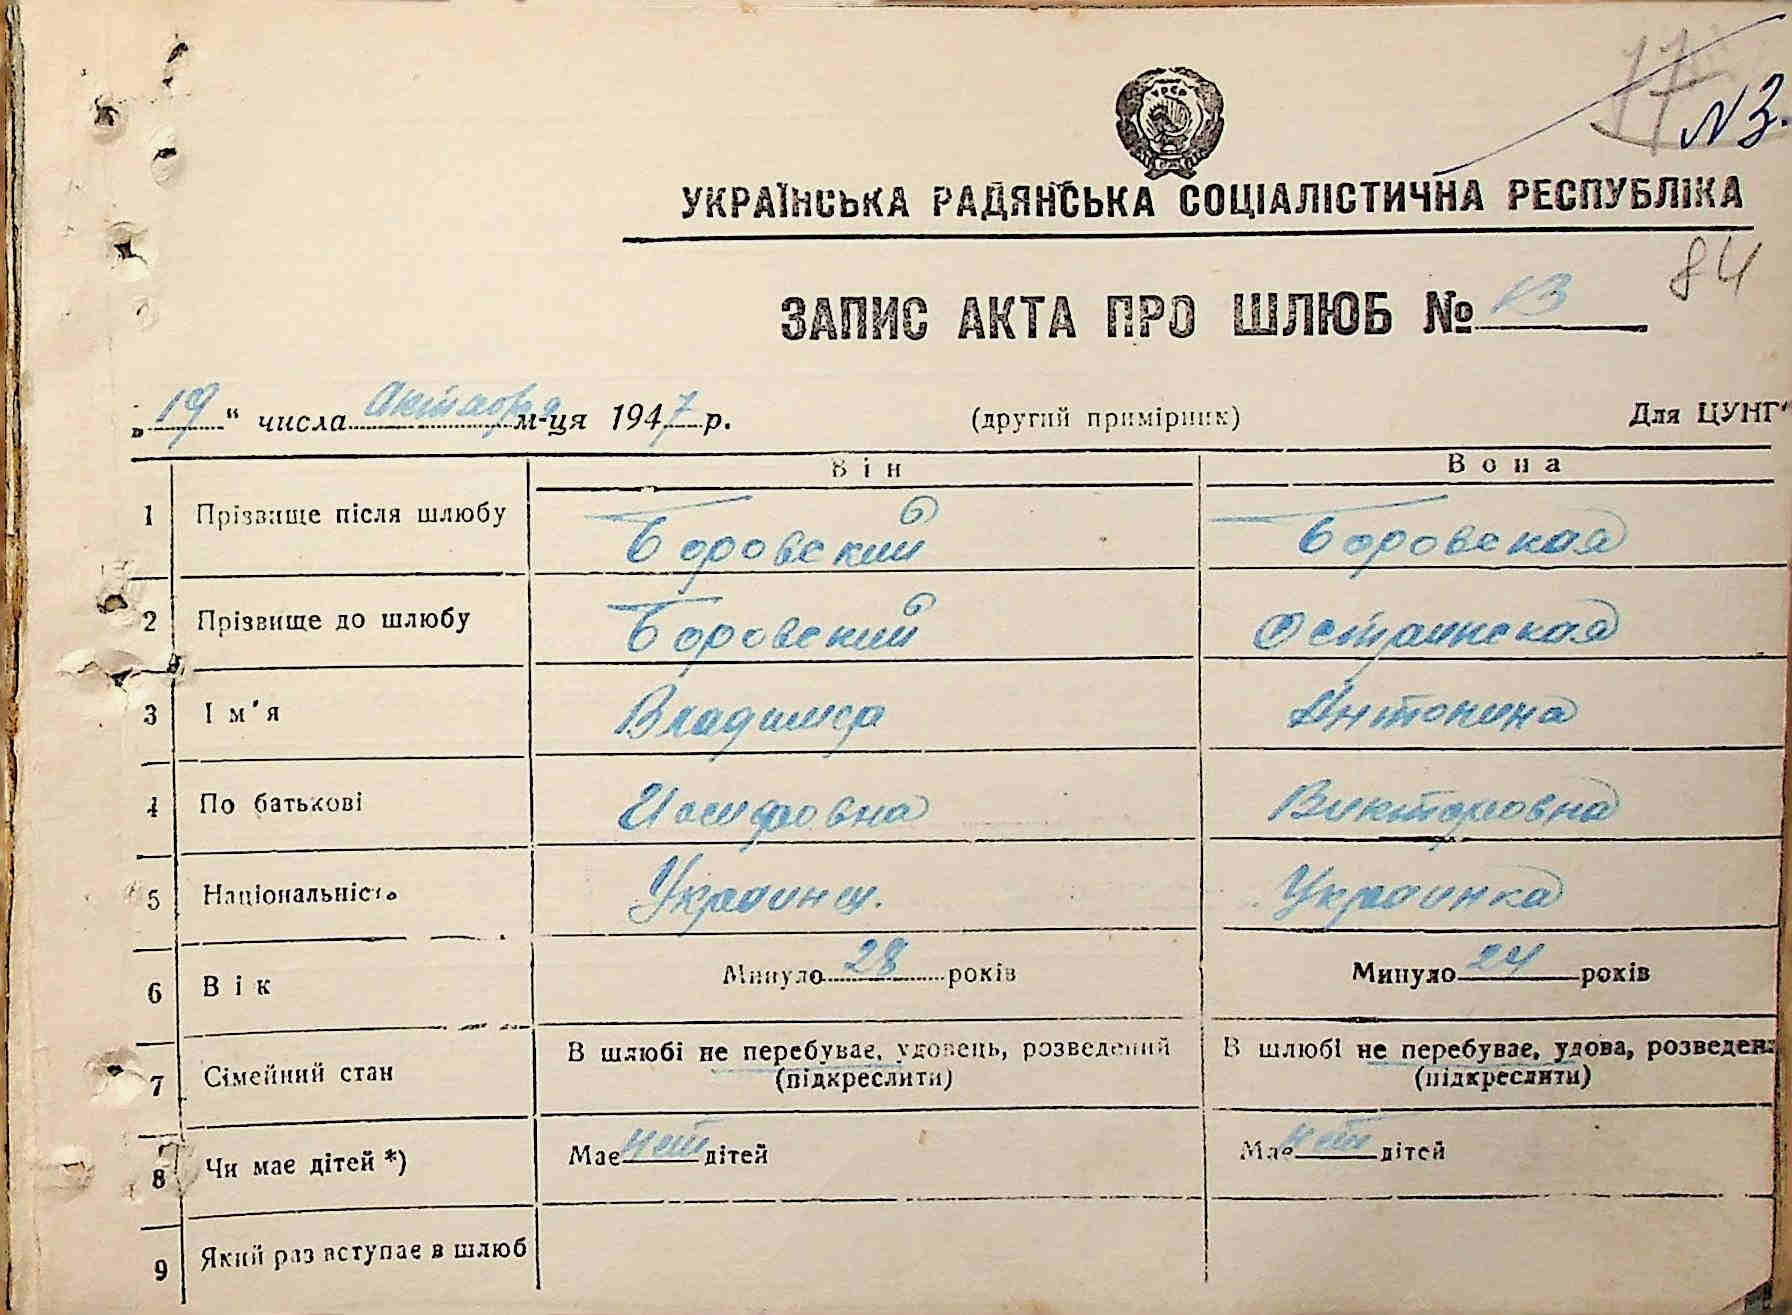 17
N 3.
УРСР
УКРАЇНСЬКА РАДЯНСЬКА СОЦІАЛІСТИЧНА РЕСПУБЛІКА
84
ЗАПИС АКТА ПРО ШЛЮБ № 13
„19“ числа Октября м-ця 1947 р. (другий примірник) Для ЦУНГ
Він Вона
1 Прізвище після шлюбу Боровский Боровская
2 Прізвище до шлюбу Боровский Остринская
3 Ім'я Владимир Антонина
4 По батькові Иосифовна Викторовна
5 Національність Украинец. Украинка
6 Вік Минуло 28 років Минуло 24 років
7 Сімейний стан В шлюбі не перебуває, удовець, розведений В шлюбі не перебуває, удова, розведен
(підкреслити) (підкреслити)
8 Чи має дітей *) Має нет дітей Має нет дітей
9 Який раз вступає в шлюб